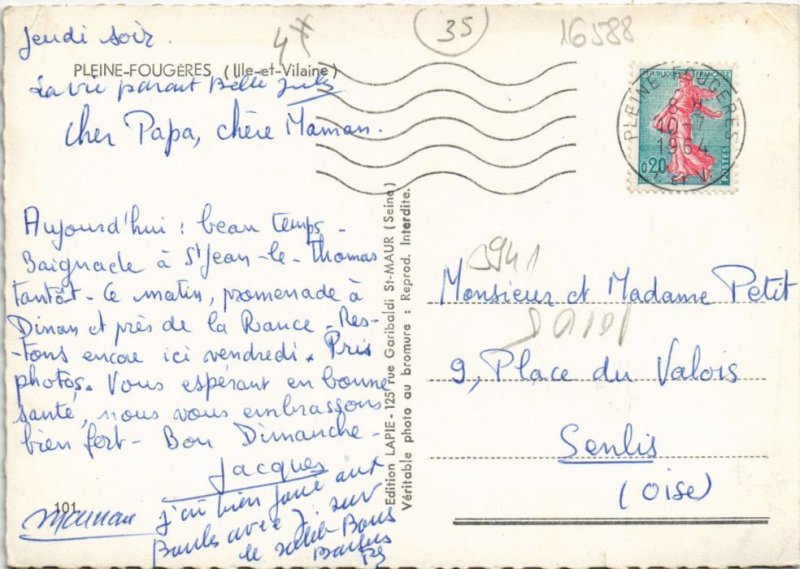 Jeudi soir.
4
35
16588
PLEINE-FOUGÈRES (Ille-et-Vilaine)
La vie parait Belle
Cher Papa, chère Maman.
PLEINE FOUGERES
8 H
10
1964
I. ET V.
0,20
POSTES
Aujourd'hui : beau temps -
Baignade à St Jean-le-Thomas
tantôt - Ce matin, promenade à
Dinan et près de la Rance - Res-
tons encore ici vendredi. Pris
photos. Vous espérant en bonne
santé, nous vous embrassons
bien fort - Bon Dimanche -
Jacques
101
Maman
j'ai bien joué aux
Boules avec J. sur
le sable Bons
Baisers
Edition LAPIE - 125, rue Garibaldi St-MAUR (Seine)
Véritable photo au bromure : Reprod. Interdite.
5941
Monsieur et Madame Petit
9, Place du Valois
Senlis
(Oise)